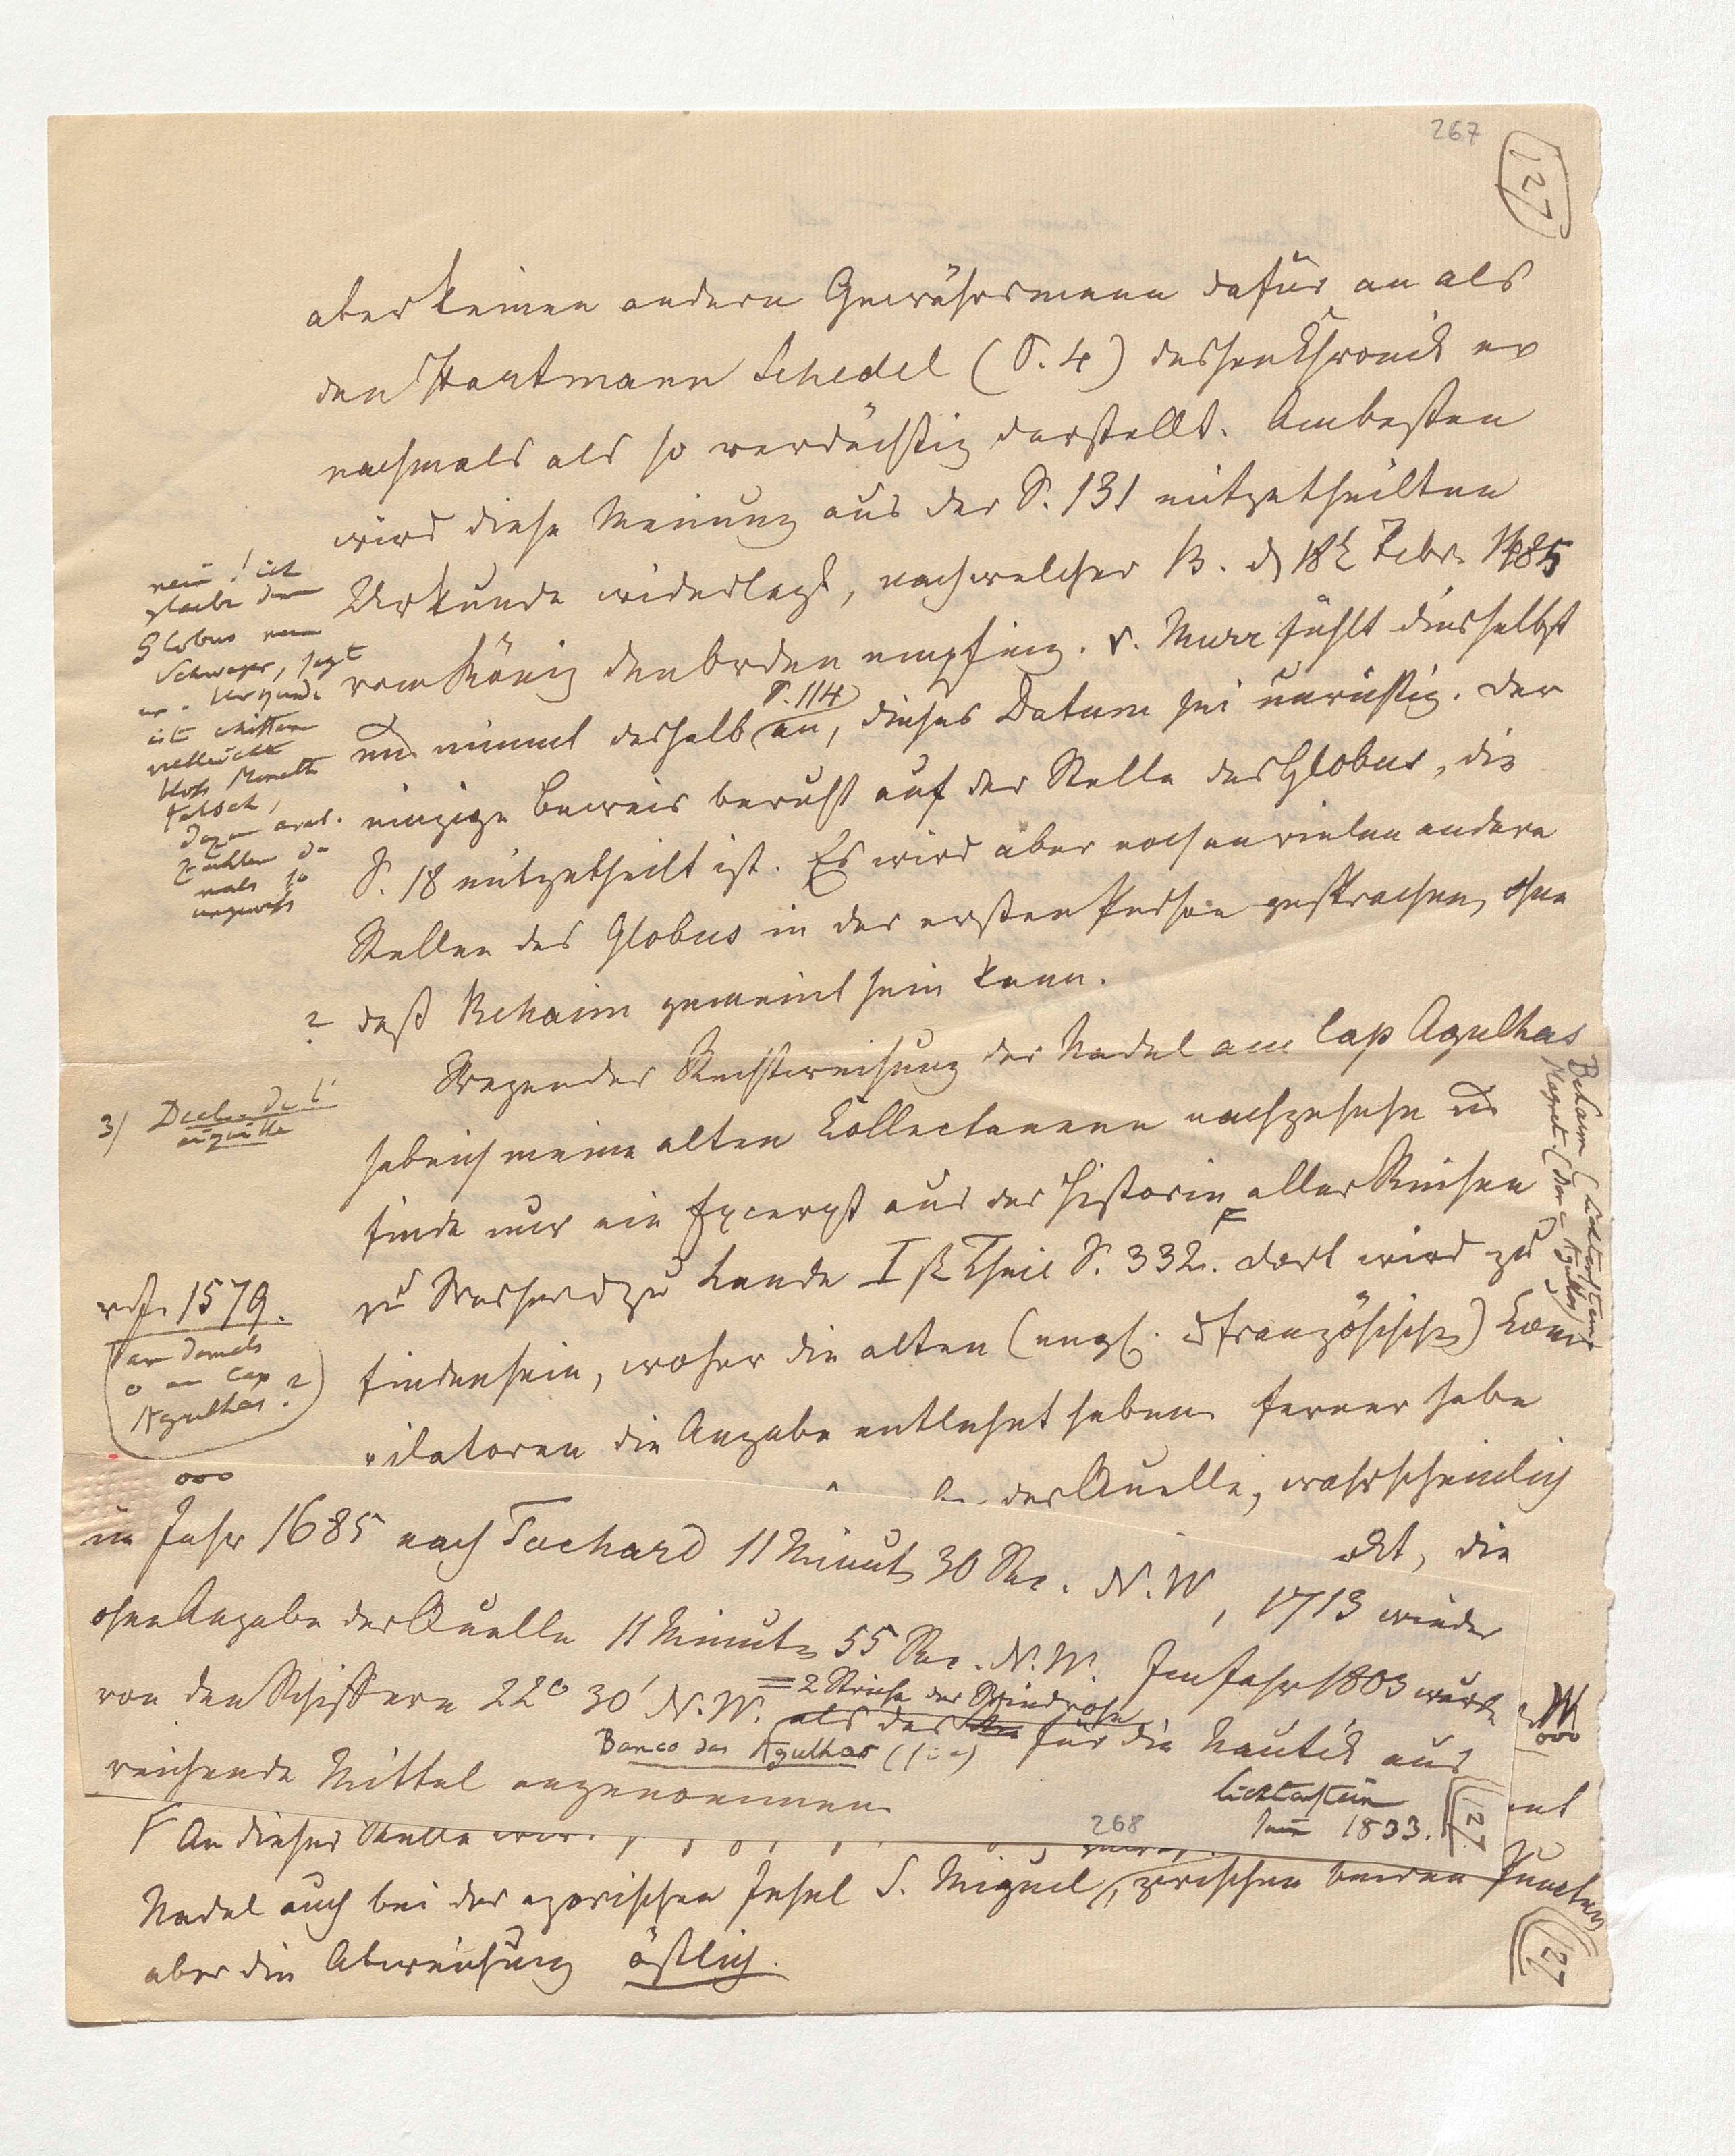 267
127
aber keinen andern Gewährsmann dafür an als
den Hartmann Schedel (S. 4) dessen Chronik er
nochmals als so verdächtig darstellt. Am besten
wird diese Meinung aus der S. 131 mitgetheilten
Urkunde widerlegt, nach welcher B. d 18t Febr. 1485
vom König den Orden empfing. v. Murr fühlt dies selbst
und nimmt deshalb S. 114 an, dieses Datum sei unrichtig. Der
einzige Beweis beruht auf der Stelle des Globus, die
S. 18 mitgetheilt ist. Es wird aber noch an vielen andern
Stellen des Globus in der ersten Person gesprochen, ohne
? daß Behaim gemeint sein kann.
nein! ich
glaube dem
Globus vom
Schwager, sagt
er. Urkunde
ist mitten
vielleicht
blos Monath
falsch,
dazu arab.
Zahlen da
mals so
ungewiß
Wegen der Rechtweisung der Nadel am Cap Agulhas
habe ich meine alten Collectaneen nachgesehn und
finde nur ein Excerpt aus der Historie aller Reisen
F
zu Wasser und zu Lande I ster Theil S. 332. Dort wird zu
finden sein, woher die alten (engl. und französischen) Com
pilatoren die Angabe entlehnt haben. Ferner habe
der Quelle, wahrscheinlich
die
3) Decl. de l'
aiguille
1579.
war damals
0 am Cap
Agulhas?
Behaim (Lichtenstein
Magnet. (Nor = Agulhas)
ooo
im Jahr 1685 nach Tachard 11 Minut 30 Sec. N.W, 1713 wieder
ohne Angabe der Quelle 11 Minuten 55 Sec. N.W. Im Jahr 1803 wurde
von den Schiffern 22° 30' N.W. = 2 Striche der Windrose als das für die Nautik aus
Banco das Agulhas
reichende Mittel angenommen
Lichtenstein
Juni 1833.
127
268
W
ooo
F An dieser Stelle
Nadel auch bei der azorischen Insel S. Miguel, zwischen beiden Puncten
aber die Abweichung östlich.
127